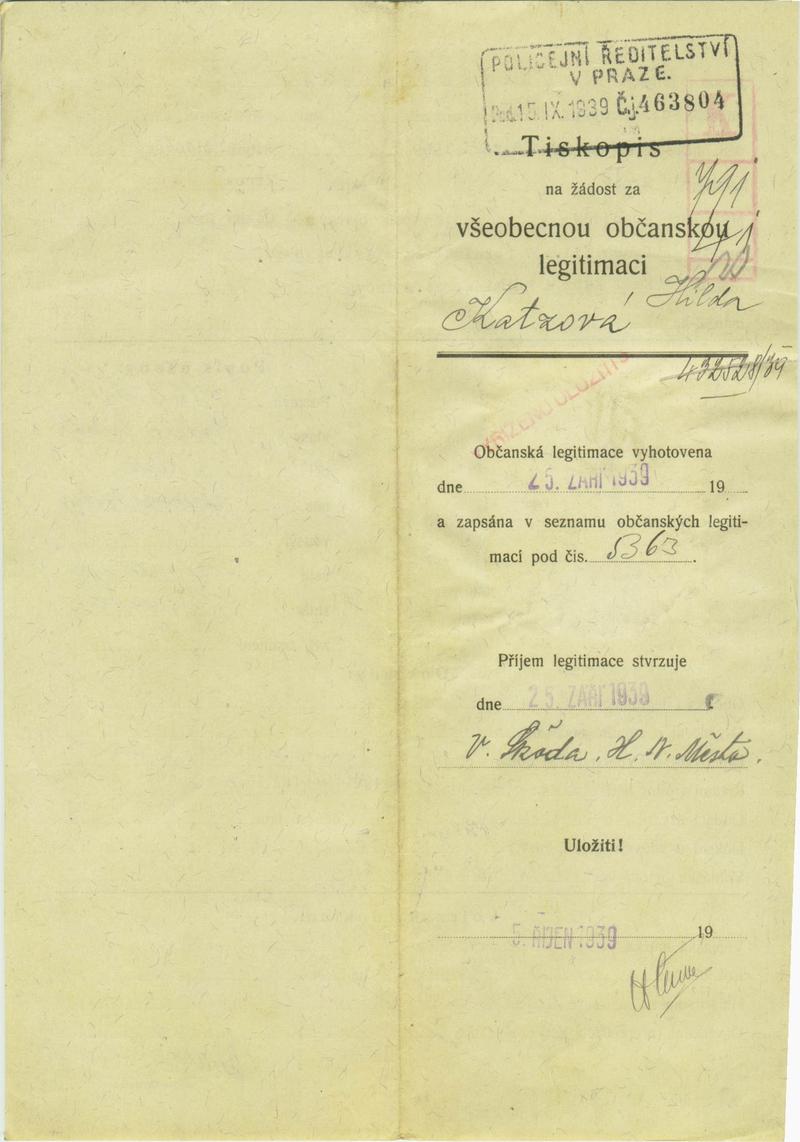 POLICEJNÍ ŘEDITELSTVÍ
V PRAZE.
15. IX. 1939 Čj. 463804
Tiskopis
na žádost za
všeobecnou občanskou
legitimaci
Katzová Hilda
432528/39
Občanská legitimace vyhotovena
dne 25. ZÁŘÍ 1939 19
a zapsána v seznamu občanských legiti-
mací pod čis. 5363.
Příjem legitimace stvrzuje
dne 25. ZÁŘÍ 1939
V. Škoda, H. N. Město.
Uložiti!
5. ŘÍJEN 1939 19